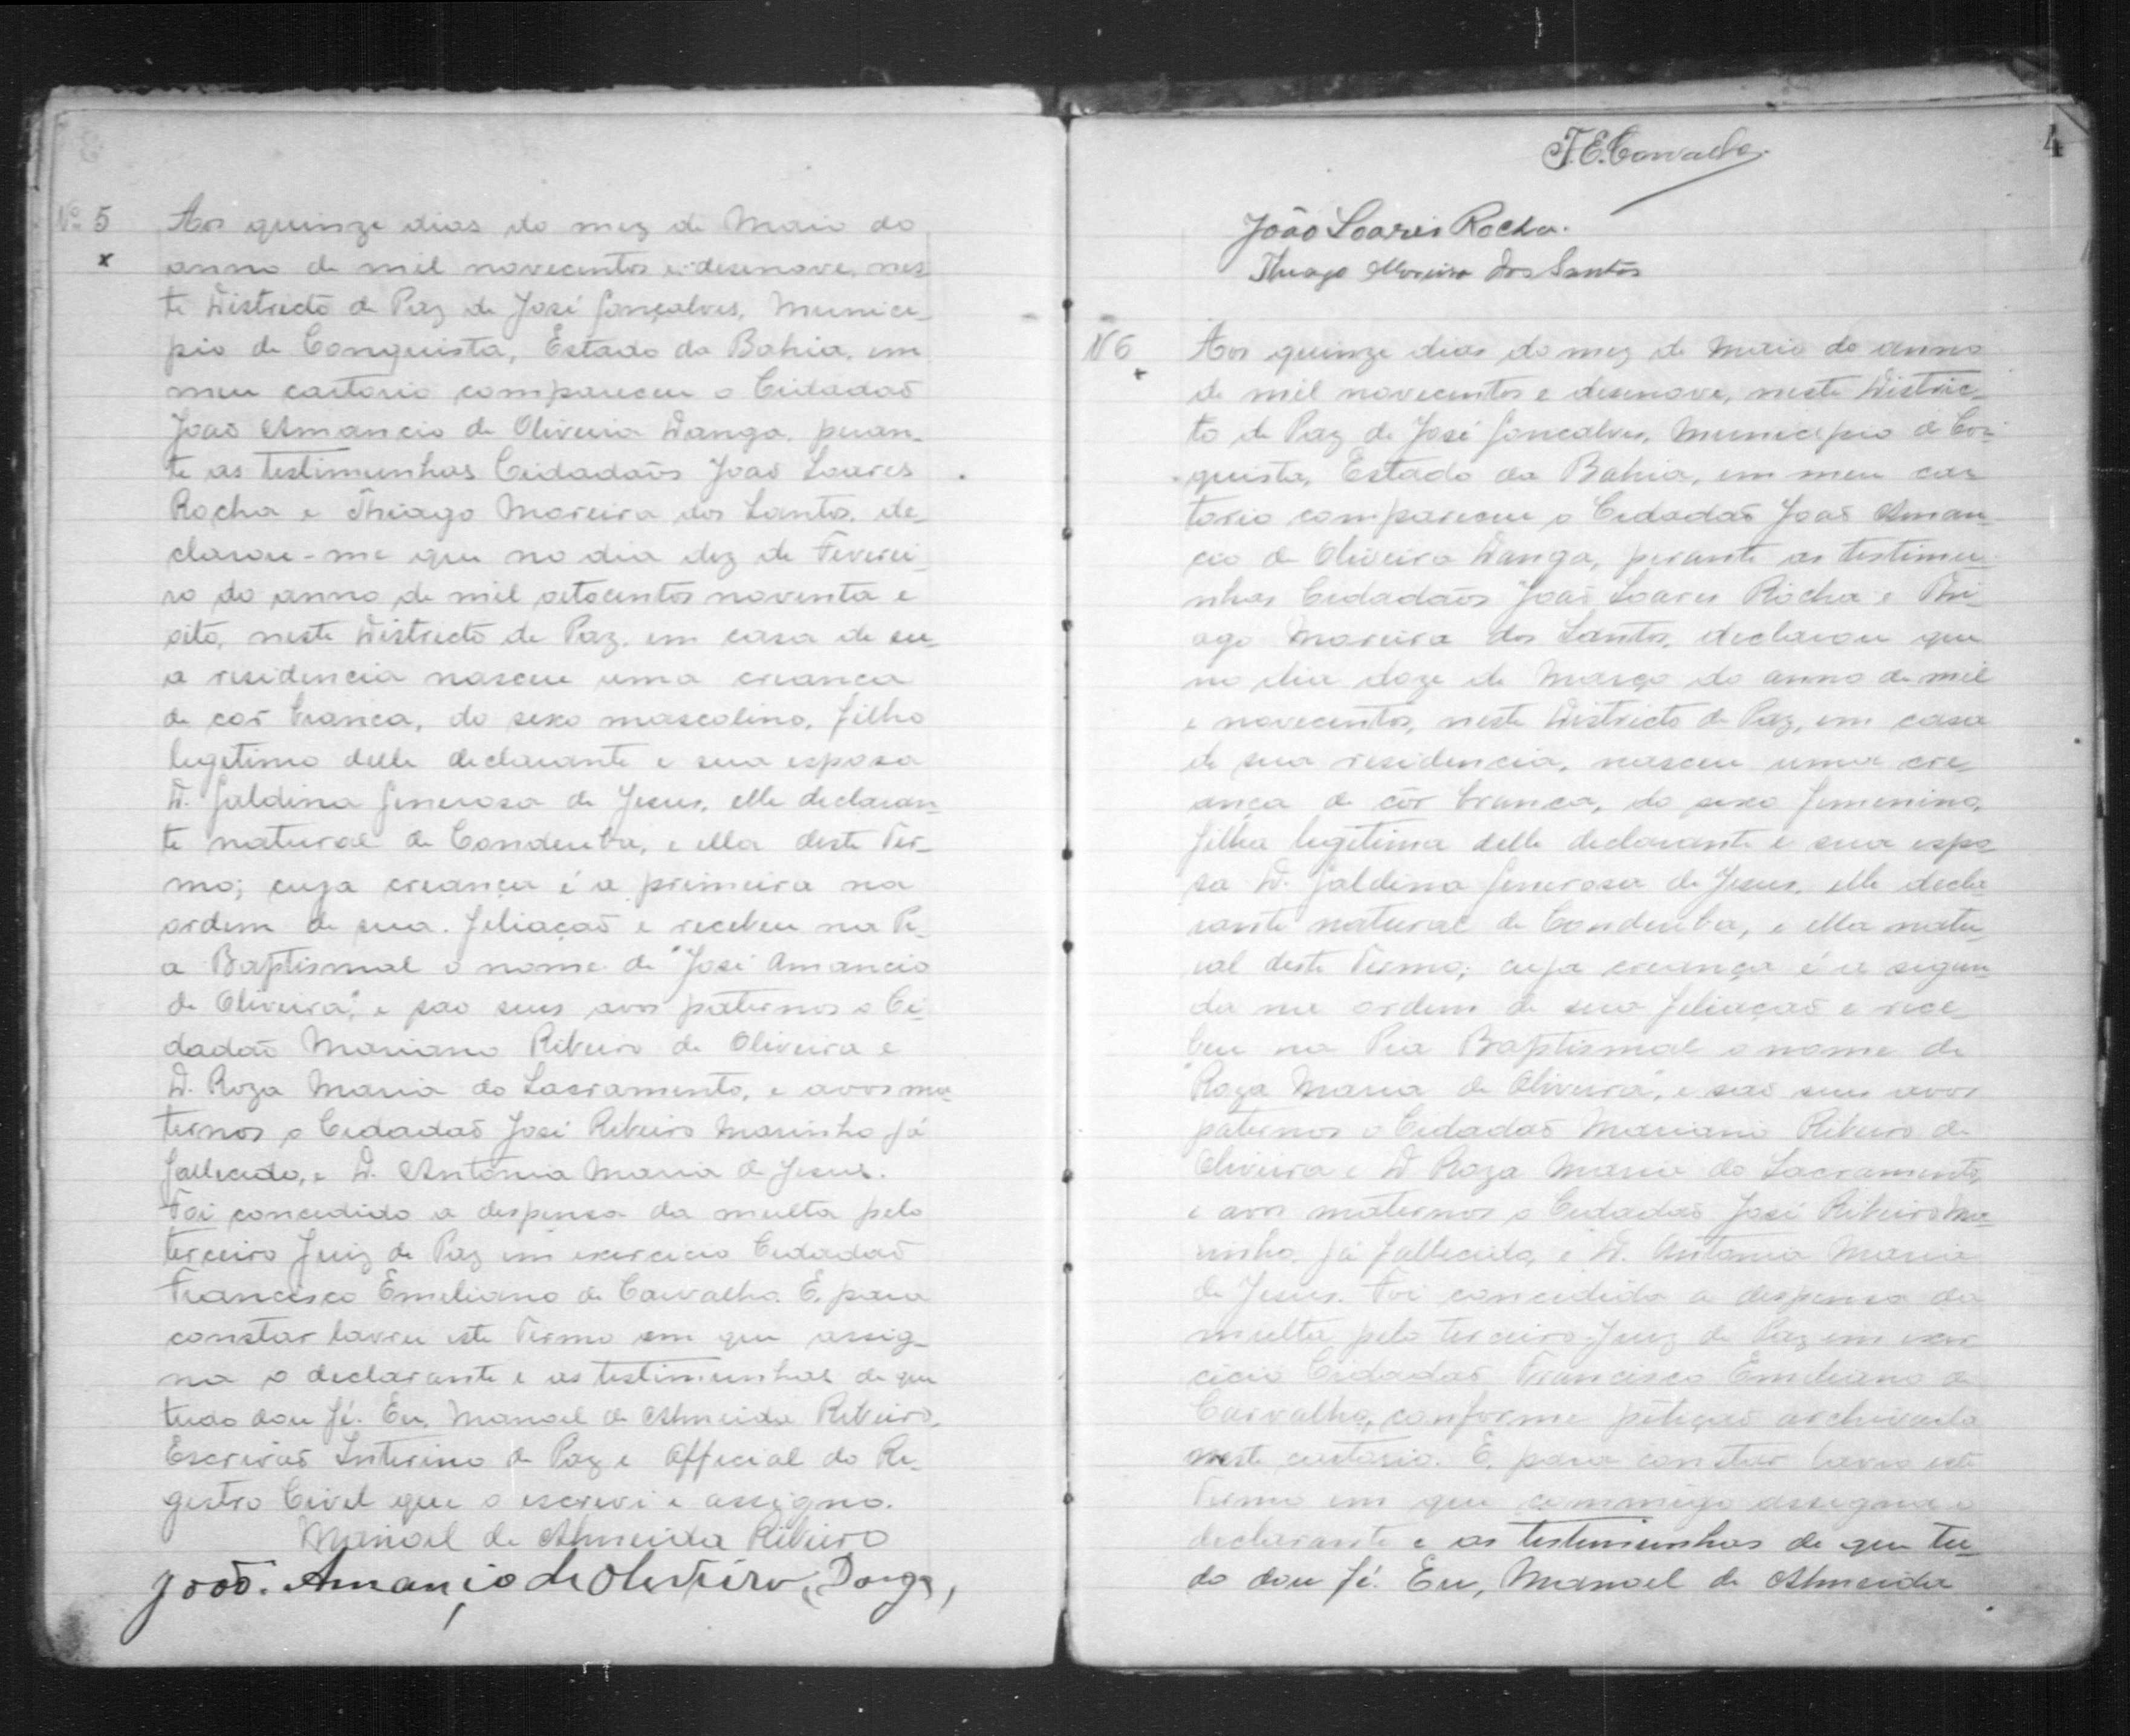 Nº 5
x
Aos quinze dias do mez de Maio do
anno de mil novecentos e desenove, nes
te Districto de Paz de José Gonçalves, Munici-
pio de Conquista, Estado da Bahia, em
meu cartorio compareceu o Cidadaõ
Joaõ Amancio de Oliveira Danga, peran-
te as testimunhas Cidadaõs Joaõ Soares
Rocha e Thiago Moreira dos Santos, de-
clarou-me que no dia dez de Feverei-
ro do anno de mil oitocentos noventa e
oito, neste Districto de Paz, em casa de su-
a residencia nasceu uma creanca
de côr branca, do sexo mascolino, filho
legitimo delle declarante e sua esposa
D. Galdina Generosa de Jesus, elle declaran-
te natural de Condeuba, e ella deste Ter-
mo; cuja creança é a primeira na
ordem de sua filiaçaõ e recebeu na Pi-
a Baptismal o nome de "José Amancio
de Oliveira", e sao seus avos paternos o Ci-
dadaõ Mariano Ribeiro de Oliveira e
D. Roza Maria do Sacramento, e avos ma-
ternos o Cidadaõ José Ribeiro Marinho já
fallecido, e D. Antonia Maria de Jesus.
Foi concedido a despensa da multa pelo
terceiro Juiz de Paz em exercicio Cidadaõ
Francisco Emeliano de Carvalho. E, para
constar lavrei este Termo em que assig-
na o declarante e as testimunhas de que
tudo dou fé. Eu, Manoel de Almeida Ribeiro,
Escrivaõ Interino de Paz e Official do Re-
gistro Civel que o escrevi e assigno.
Manoel de Almeida Ribeiro
Joaõ. Amançio de Oliveira, Danga,
4
F.E. Carvalho.
João Soares Rocha.
Thiago Moreira dos Santos
N 6
x
Aos quinze dias do mez de Maio do anno
de mil novecentos e desenove, neste Distric-
to de Paz de José Goncalves, Municipio de Con-
quista, Estado da Bahia, em meu car
torio compareceu o Cidadaõ Joaõ Aman-
cio de Oliveira Danga, perante as testimu-
nhas Cidadaõs Joaõ Soares Rocha e Thi-
ago Moreira dos Santos, declarou que
no dia doze de Março do anno de mil
e novecentos, neste Districto de Paz, em casa
de sua residencia, nasceu uma cre-
ança de côr branca, do sexo femenino,
filha legitima delle declarante e sua espo
sa D. Galdina Generosa de Jesus, elle decla
rante natural de Condeuba, e ella natu-
ral deste Termo; cuja creança é a segun-
da na ordem de sua filiaçaõ e rece-
beu na Pia Baptismal o nome de
"Roza Maria de Oliveira", e saõ seus avos
paternos o Cidadaõ Mariano Ribeiro de
Oliveira e D. Roza Maria do Sacramento,
e avos maternos o Cidadaõ José Ribeiro Ma-
rinho, já fallecido, e D. Antonia Maria
de Jesus. Foi concedida a despensa da
multa pelo terceiro Juiz de Paz em exer
cicio Cidadaõ Francisco Emeliano de
Carvalho, conforme petiçaõ archivada
neste cartorio. E, para constar lavro este
Termo em que commigo assigna o
declarante e as testimunhas de que tu-
do dou fé. Eu, Manoel de Almeida